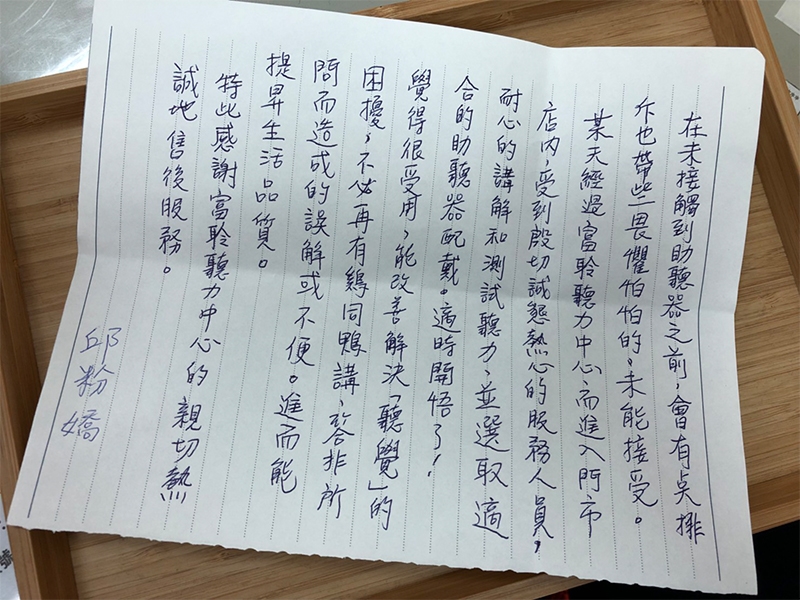 在未接觸到助聽器之前，會有点排
斥也帶些畏懼怕怕的。未能接受。
某天經過富聆聽力中心，而進入門市
店內，受到殷切誠懇熱心的服務人員，
耐心的講解和測試聽力，並選取適
合的助聽器配戴。適時開悟了！
覺得很受用，能改善解決「聽覺」的
困擾，不必再有鷄同鴨講，答非所
問而造成的誤解或不便。進而能
提昇生活品質。
特此感謝富聆聽力中心的親切熱
誠地售後服務。
邱粉嬌